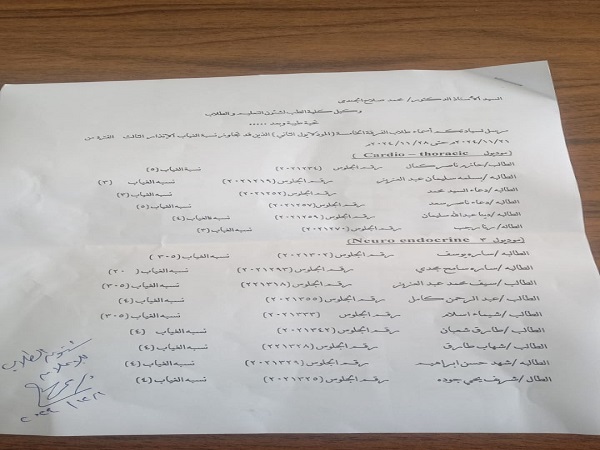 السيد الأستاذ الدكتور/ محمد صلاح الجندي
وكيل كلية الطب لشئون التعليم و الطلاب
تحية طيبة وبعد ،،،،،
مرسل لسيادتكم أسماء طلاب الفرقة الخامسة (الموديول الثاني) الذين قد تجاوز نسبة الغياب الإنذار الثالث الفترة من
٢٠٢٤/١١/٢١م حتى ٢٠٢٤/١١/٢٨م
(موديول Cardio – thoracic)
الطالب/حازم ناصر كمال رقم الجلوس (٢٠٢١٢٣٤) نسبة الغياب (٥)
الطالبه/سلمه سليمان عبد العزيز رقم الجلوس (٢٠٢١٢١٩) نسبة الغياب (٣)
الطالبه/دعاء السيد محمد رقم الجلوس (٢٠٢١٢٥٢) نسبة الغياب (٣)
الطالبه/دعاء ناصر سعد رقم الجلوس (٢٠٢١٢٥٧) نسبة الغياب (٥)
الطالبه/دينا عبدالله سليمان رقم الجلوس (٢٠٢١٢٥٩) نسبة الغياب (٤)
الطالبه/رنا رجب رقم الجلوس (٢٠٢١٢٧٠) نسبة الغياب (٣)
(موديول ٢ Neuro endocrine)
الطالبه/ساره يوسف رقم الجلوس (٢٠٢١٣٠٢) نسبة الغياب (٣٠٥)
الطالبه/ساره سامح مجدي رقم الجلوس (٢٠٢١٢٩٣) نسبة الغياب (٢٠)
الطالب/سيف محمد عبد العزيز رقم الجلوس (٢٢١٣١٨) نسبة الغياب (٣٠٥)
الطالب/عبد الرحمن كامل رقم الجلوس (٢٠٢١٣٥٥) نسبة الغياب (٤)
الطالبه/شيماء اسلام رقم الجلوس (٢٠٢١٣٣٣) نسبة الغياب (٣٠٥)
الطالب/طارق شعبان رقم الجلوس (٢٠٢١٣٤٢) نسبة الغياب (٤)
الطالب/شهاب طارق رقم الجلوس (٢٢١٣٢٨) نسبة الغياب (٤)
الطالبه/شهد حسن ابراهيم رقم الجلوس (٢٠٢١٣٢٩) نسبة الغياب (٤)
الطالب/شريف يحي جوده رقم الجلوس (٢٠٢١٣٢٥) نسبة الغياب (٤)
شئون الطلاب
للإعلام